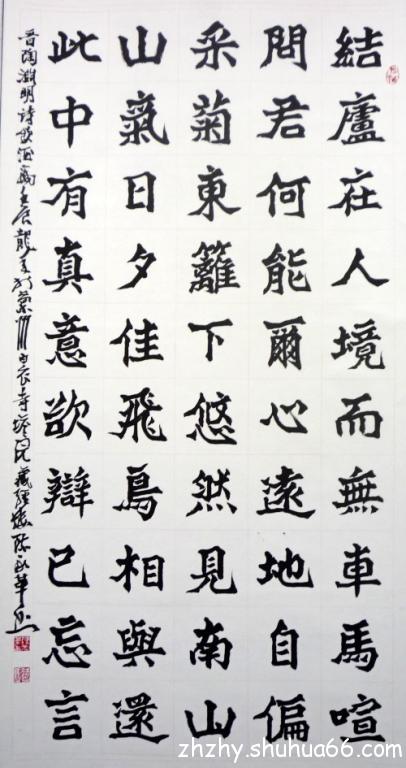 結廬在人境而無車馬喧
問君何能爾心遠地自偏
采菊東籬下悠然見南山
山氣日夕佳飛鳥相與還
此中有真意欲辯已忘言
晉陶淵明詩飲酒壬辰龍年
zhzhy.shuhua66.com